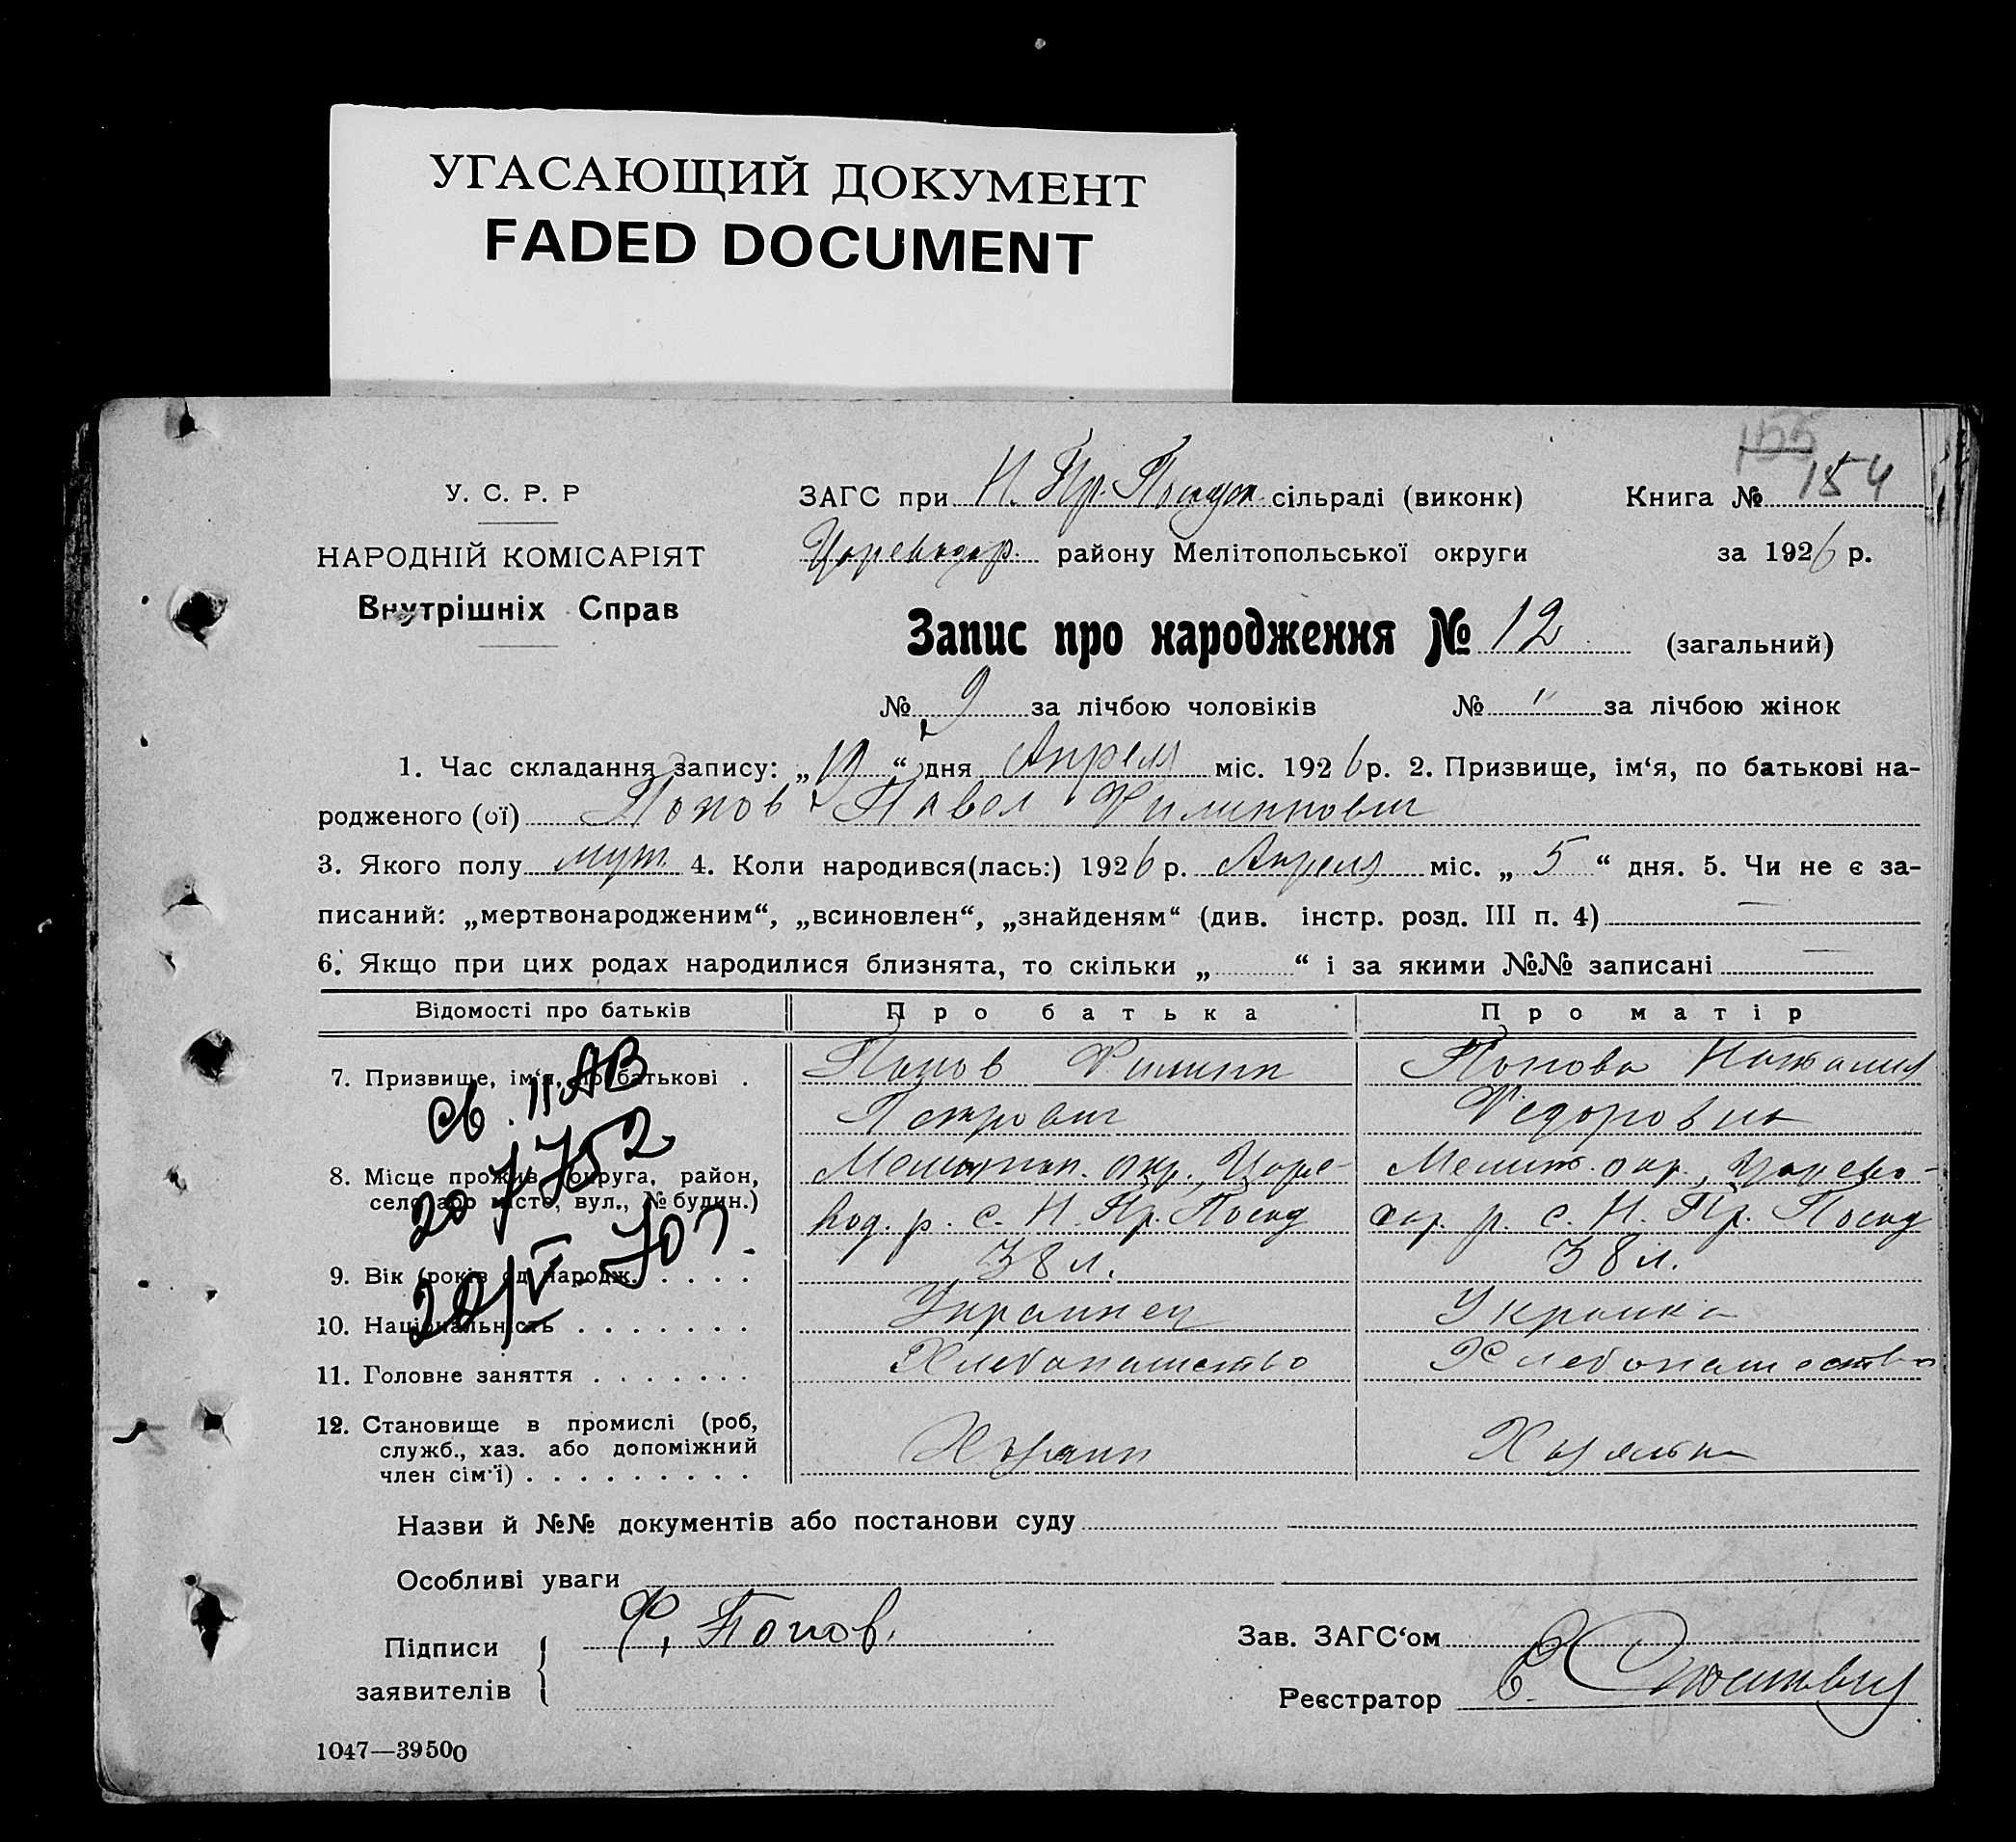 УГАСАЮЩИЙ ДОКУМЕНТ
FADED DOCUMENT
155
У. С. Р. Р
ЗАГС при Н. Пр. Посадск. сільраді (виконк)
Книга № 154
НАРОДНІЙ КОМІСАРІЯТ
Цареводар. району Мелітопольської округи
за 1926 р.
Внутрішніх Справ
Запис про народження № 12 (загальний)
№ 9 за лічбою чоловіків № " за лічбою жінок
1. Час складання запису: „19“ дня Апреля міс. 1926 р. 2. Призвище, ім‘я, по батькові на-
родженого (ої) Попов Павел Филиппович
3. Якого полу муж 4. Коли народився(лась:) 1926 р. Апреля міс. „5“ дня. 5. Чи не є за-
писаний: „мертвонародженим“, „всиновлен“, „знайденям“ (див. інстр. розд. III п. 4) —
6. Якщо при цих родах народилися близнята, то скільки „ “ і за якими №№ записані —
Відомості про батьків Про батька Про матір
7. Призвище, ім‘я, по батькові . Попов Филипп Попова Наталия
Петрович Федоровна
св. II АВ
8. Місце прожив. (округа, район, Мелитоп. окр., Царе- Мелит. окр., Царево-
село або місто, вул., № будин.) вод. р. с. Н. Пр. Посад дар. р. с. Н. Пр. Посад
207752
9. Вік (років од народж. . . . . 38 л. 38 л.
20/V-70г.
10. Національність . . . . . . . Украинец Украинка
11. Головне заняття . . . . . . . Хлебопашество Хлебопашество
12. Становище в промислі (роб,
служб., хаз. або допоміжний
член сім‘ї) . . . . . . . . . Хозяин Хозяйка
Назви й №№ документів або постанови суду
Особливі уваги
Підписи Ф. Попов. Зав. ЗАГС‘ом
заявителів Реєстратор
1047—39500